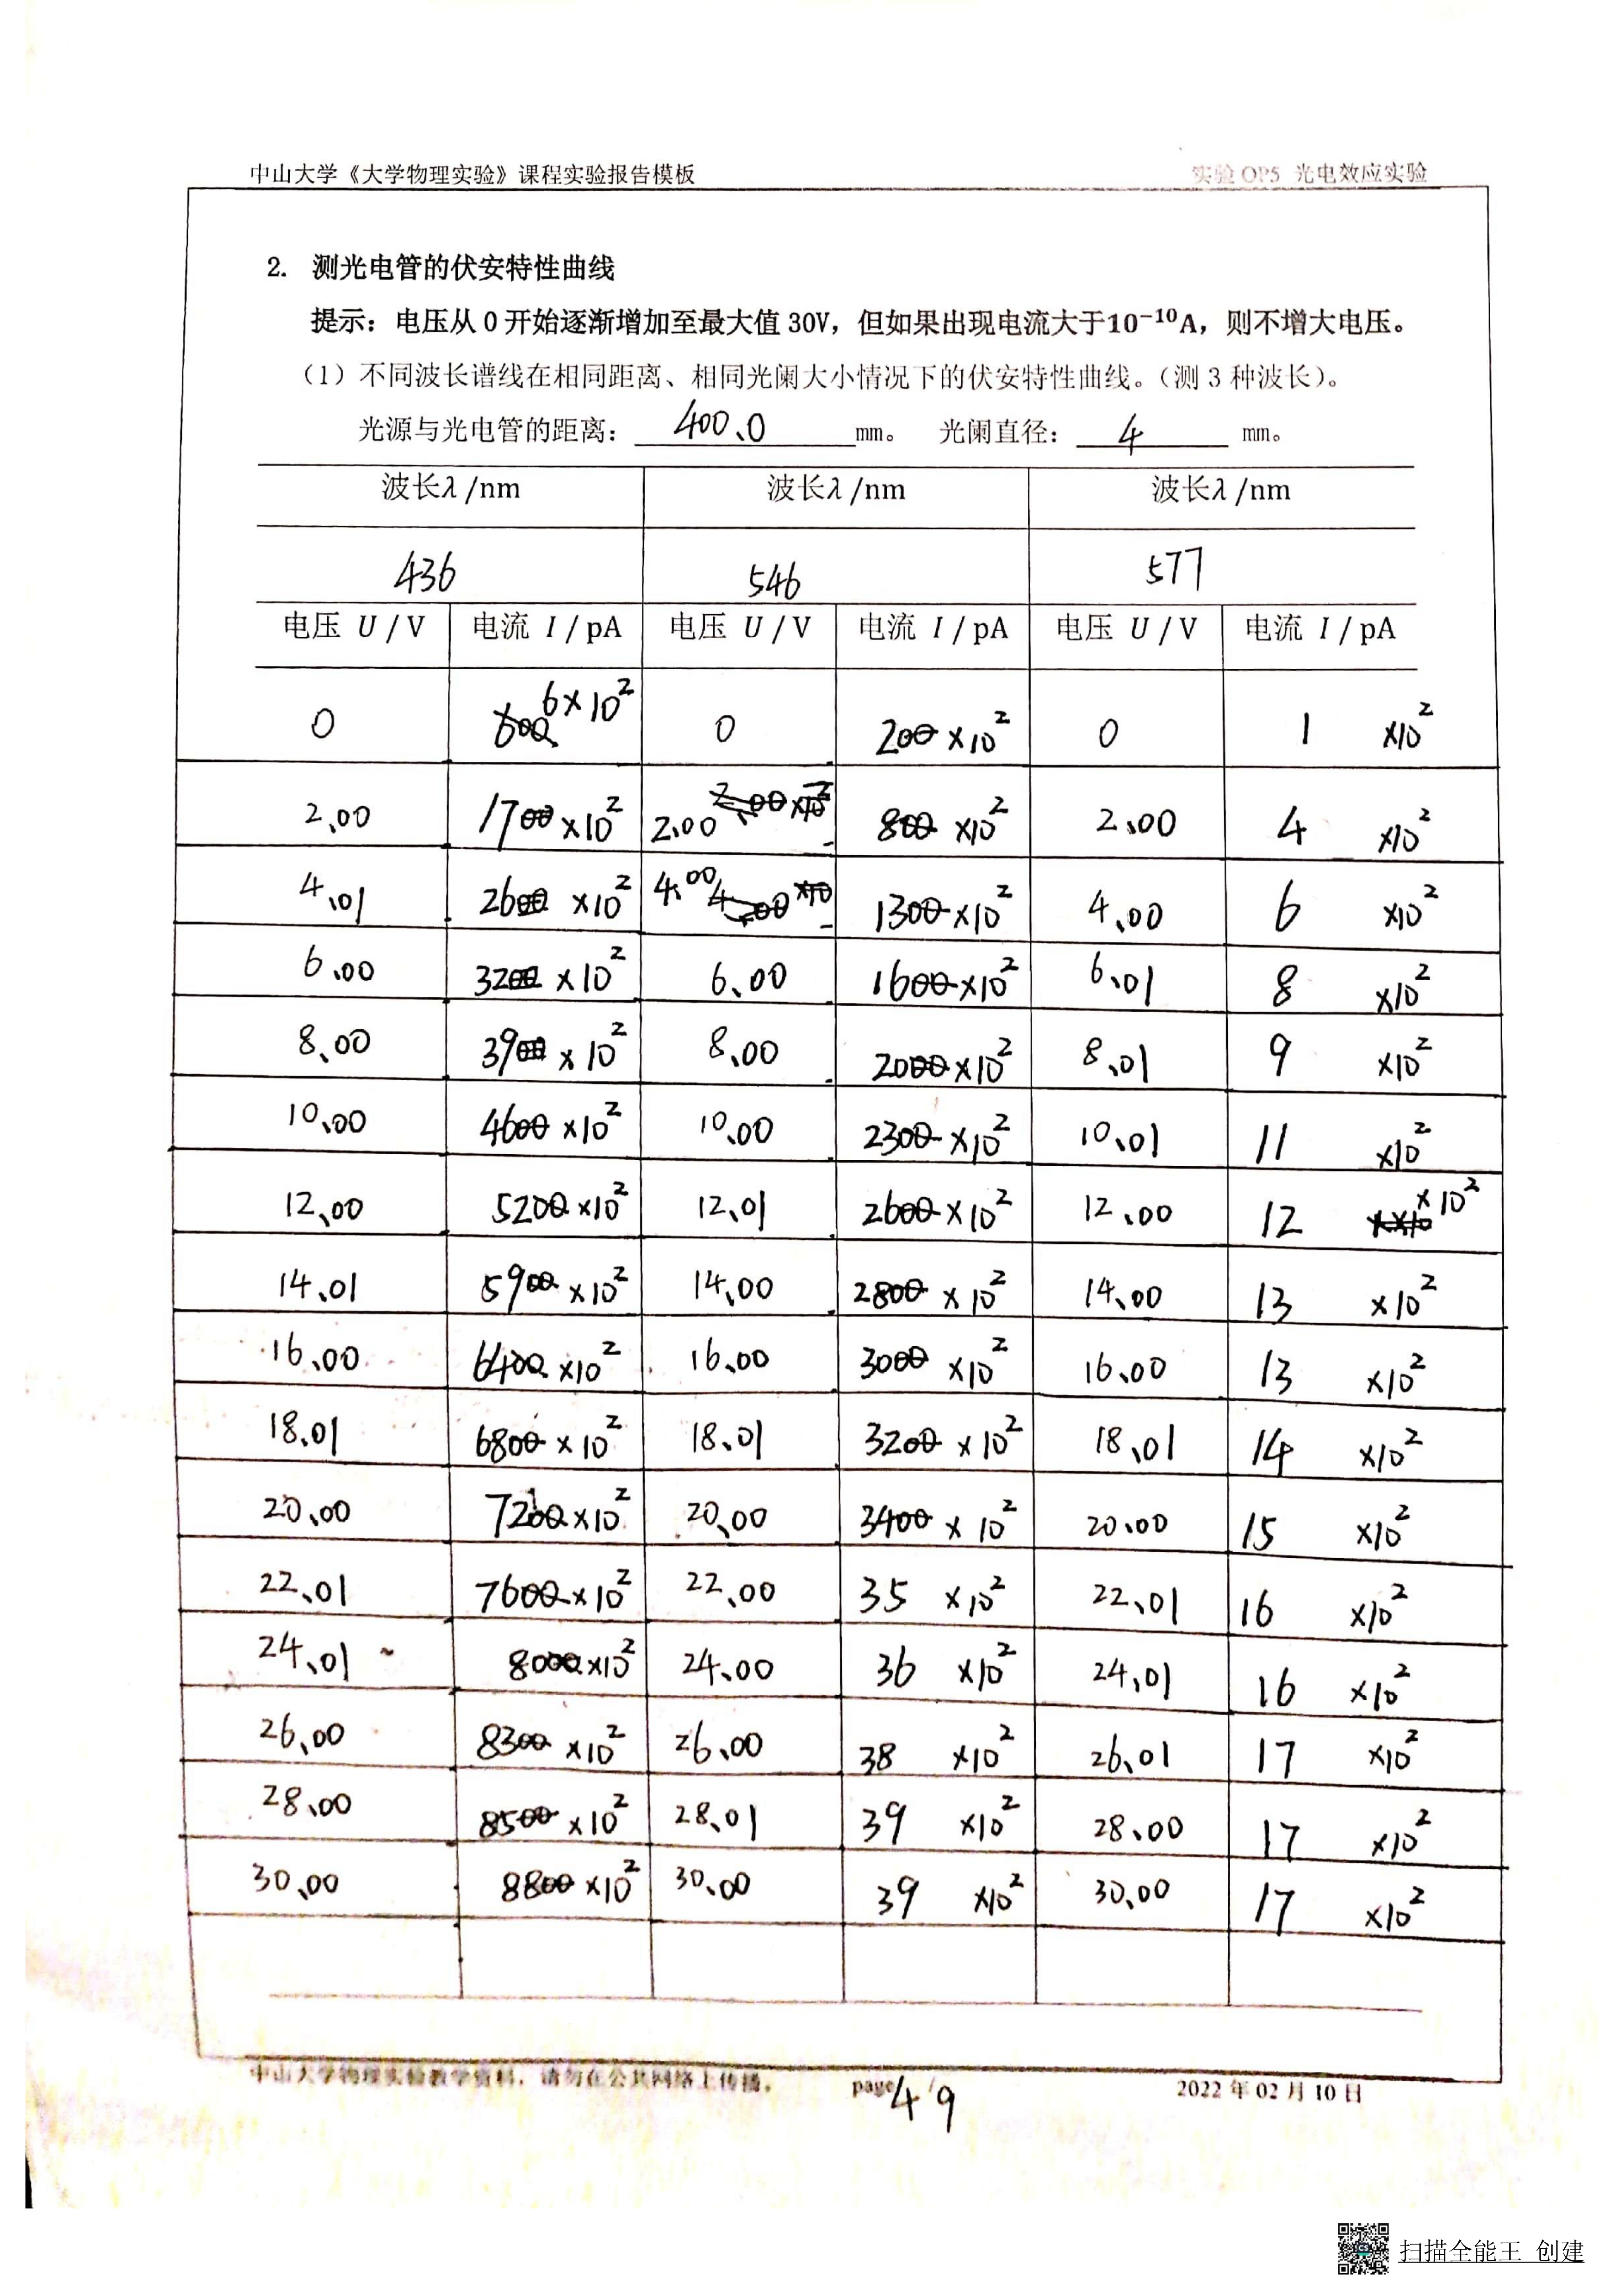 中山大学《大学物理实验》课程实验报告模板 实验 OP5 光电效应实验
2. 测光电管的伏安特性曲线
提示：电压从 0 开始逐渐增加至最大值 30V，但如果出现电流大于10⁻¹⁰A，则不增大电压。
（1）不同波长谱线在相同距离、相同光阑大小情况下的伏安特性曲线。（测 3 种波长）。
光源与光电管的距离： 400.0 mm。 光阑直径： 4 mm。
波长λ/nm 波长λ/nm 波长λ/nm
436 546 577
电压 U / V 电流 I / pA 电压 U / V 电流 I / pA 电压 U / V 电流 I / pA
0 6×10² 0 2×10² 0 1 ×10²
2.00 17×10² 2.00 8×10² 2.00 4 ×10²
4.01 26×10² 4.00 13×10² 4.00 6 ×10²
6.00 32×10² 6.00 16×10² 6.01 8 ×10²
8.00 39×10² 8.00 20×10² 8.01 9 ×10²
10.00 46×10² 10.00 23×10² 10.01 11 ×10²
12.00 52×10² 12.01 26×10² 12.00 12 ×10²
14.01 59×10² 14.00 28×10² 14.00 13 ×10²
16.00 64×10² 16.00 30×10² 16.00 13 ×10²
18.01 68×10² 18.01 32×10² 18.01 14 ×10²
20.00 72×10² 20.00 34×10² 20.00 15 ×10²
22.01 76×10² 22.00 35 ×10² 22.01 16 ×10²
24.01 80×10² 24.00 36 ×10² 24.01 16 ×10²
26.00 83×10² 26.00 38 ×10² 26.01 17 ×10²
28.00 85×10² 28.01 39 ×10² 28.00 17 ×10²
30.00 88×10² 30.00 39 ×10² 30.00 17 ×10²
中山大学物理实验教学资料，请勿在公共网络上传播。 page 4/9 2022 年 02 月 10 日
扫描全能王 创建